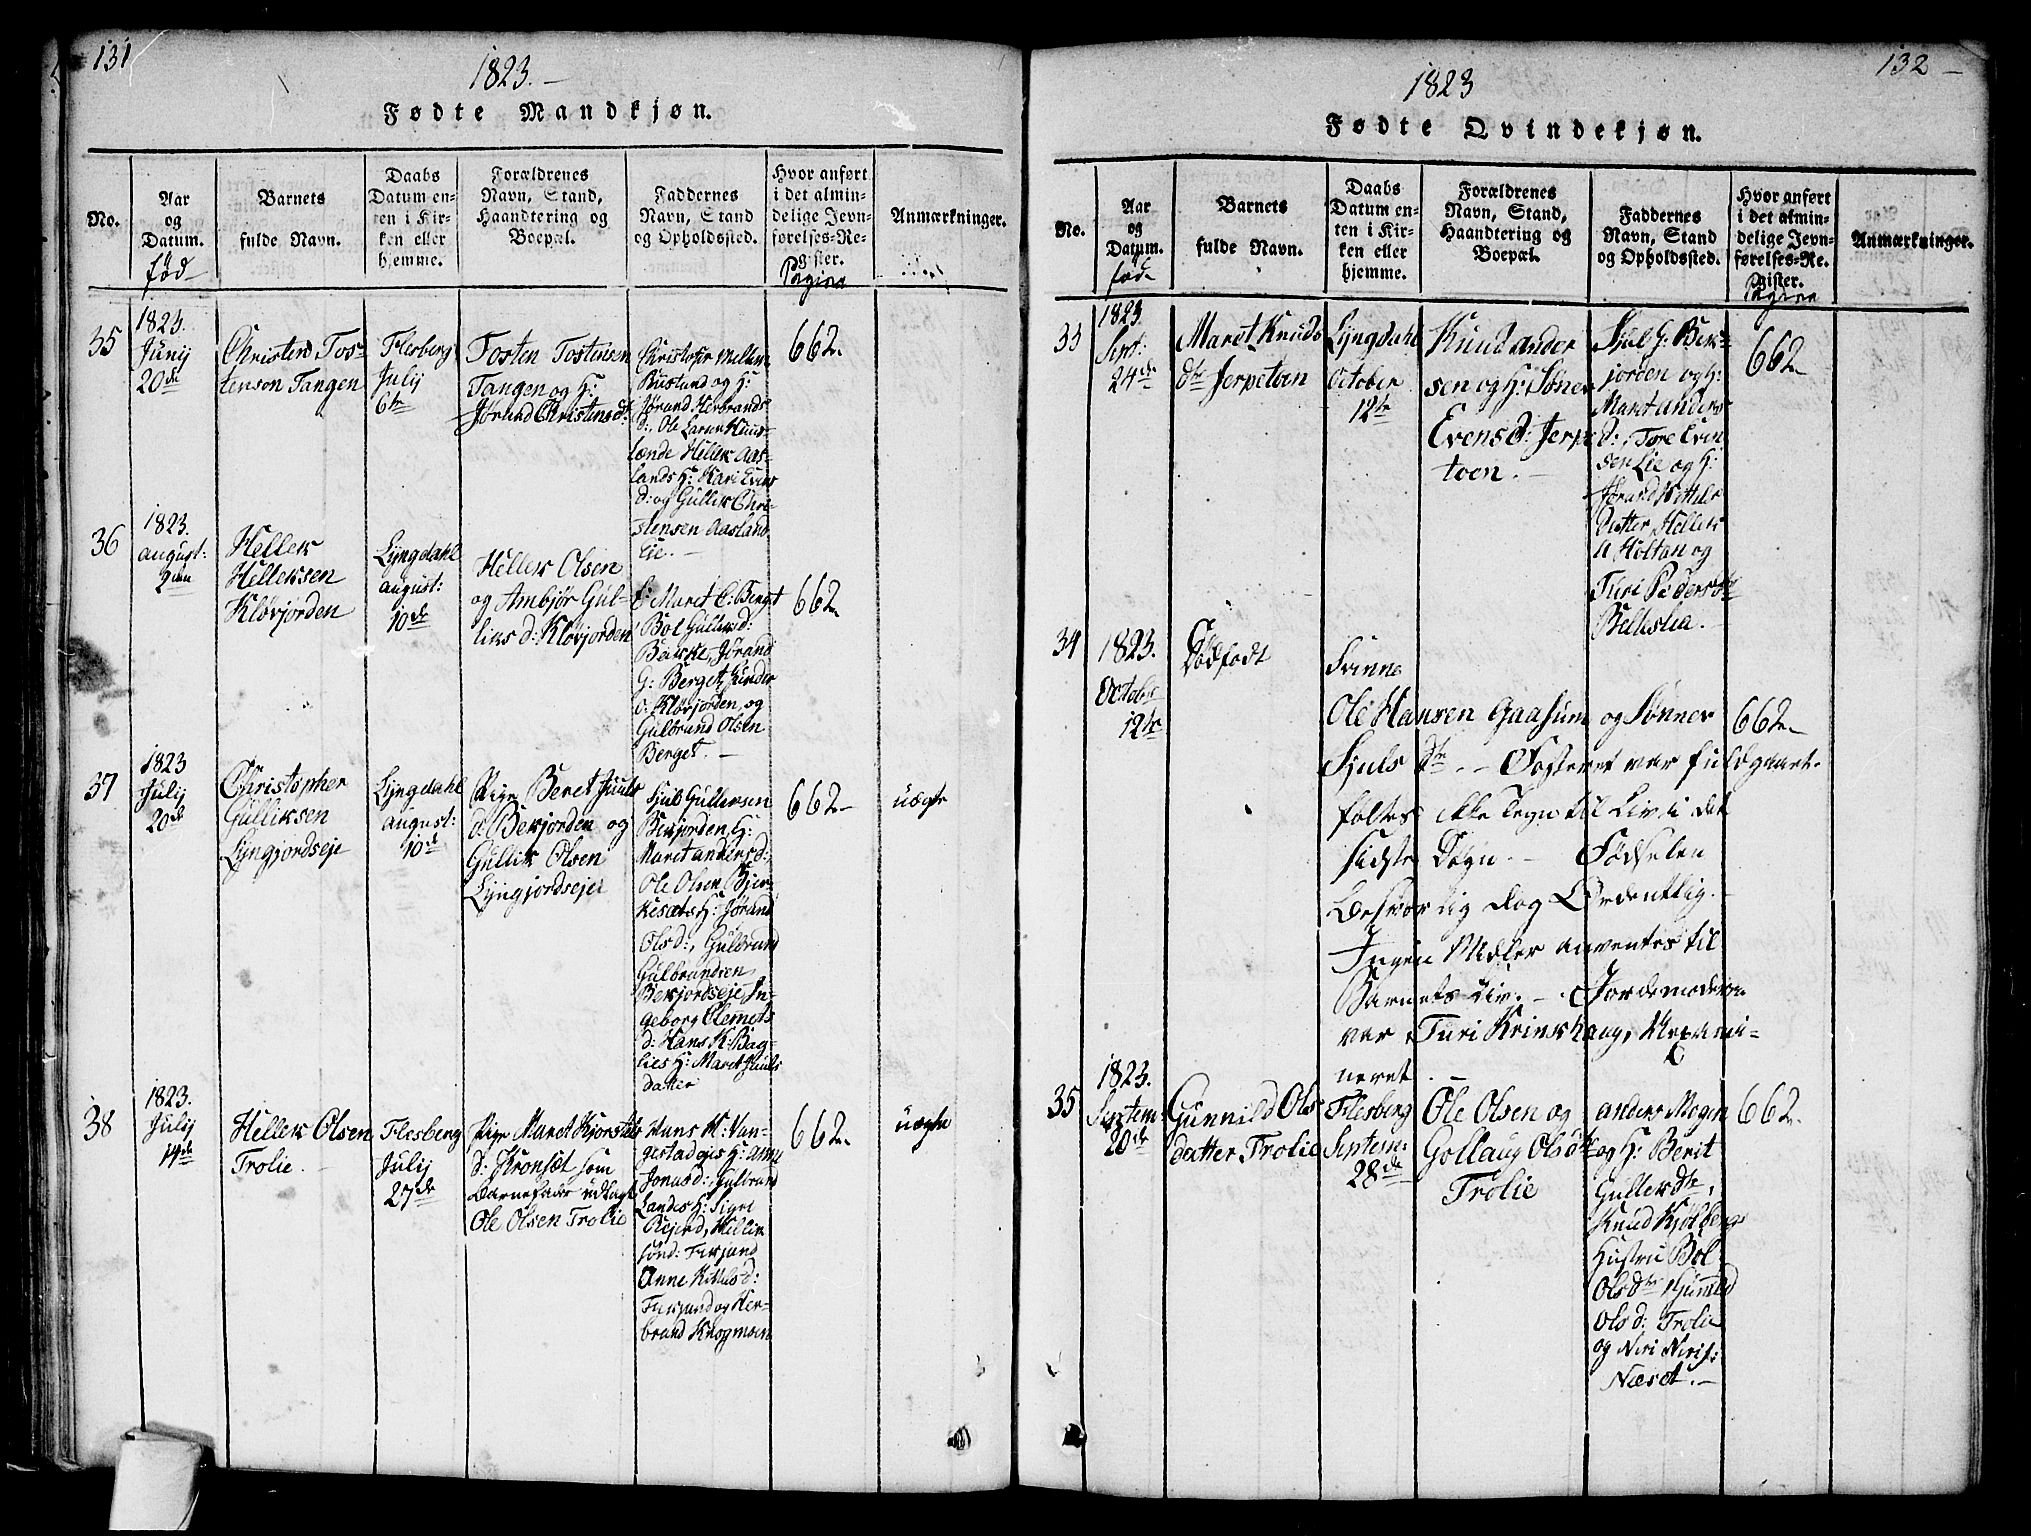 131
1823.
Fødte Mandkjøn.
No.
Aar
og
Datum.
fød
Barnets
fulde Navn.
Daabs
Datum en-
ten i Kir-
ken eller
hjemme.
Forældrenes
Navn, Stand,
Haandtering og
Boepæl.
Faddernes
Navn, Stand
og Opholdssted.
Hvor anført
i det almin-
delige Jevn-
førelses-Re-
gister.
Pagina
Anmærkninger.
35
1823.
Junij
20de
Christen Tos-
tenson Tangen
Flesberg
Julij
6te
Tosten Tostensen
Tangen og H:
Jørand Christensd:
Christofer Mellem
Bustund og H:
Jørand Herbrands
d:, Ole Larsen
lænde Hellek Aas-
lands H: Kari Evens
d: og Gullik Chri-
stensen Aasland
Eie.-
662
36
1823.
August:
2den
Hellek
Helleksen
Kløvjorden
Lyngdahl
August:
10de
Hellek Olsen
og Ambjør Gul-
liks d: Kløvjorden
E: Maret C: Berget
Bol Gulleksd:
Jørand
G: Berget,
o: Kløvjorden, og
Gulbrand Olsen
Berget.-
662
37
1823
Julij
20de
Christopher
Gulliksen
Lyngjordseje
Lyngdahl
August:
10de
Pige Beret Juuls
d: Bekjorden og
Gullik Olsen
Lyngjordsejer
Sjul Gulleksen
Bekjorden H:
Maret Andersd:,
Ole Olsen Bjer-
kesæts H: Jørand
Olsd:, Guldbrand
Gulbrandsen
Bekjordseje, In-
geborg Clemets
d: Hans K: Bag-
lies H: Maret Juuls
datter
662
uægte
38
1823.
Julij
14de
Hellek Olsen
Trolie.
Flesberg
Julij
27de
Pige Maret Kjørstels
d: Kronsæt som
Barnefader udlagt
Ole Olsen Trolie
Hans K: Van-
gestadejes H: Anne
Jonasd:, Gulbrand
Landes H: Sigri
Anne Kittelsd:
Furjund og Her-
brand Knogmoen
662
uægte
132
1823
Fødte Qvindekjøn.
No.
Aar
og
Datum.
fød
Barnets
fulde Navn.
Daabs
Datum en-
ten i Kir-
ken eller
hjemme.
Forældrenes
Navn, Stand,
Haandtering og
Boepæl.
Faddernes
Navn, Stand
og Opholdssted.
Hvor anført
i det almin-
delige Jevn-
førelses-Re-
gister.
Pagina
Anmærkninger.
33
1823.
Sept:
24de
Maret Knuds
dtr Jerpetoen
Lyngdahl
October
12te
Knud Ander
sen og H: Sønev
Evensd: Jerpe
toen.-
Sjul G: Bek-
jorden og H:
Maret Anders
d:, Tore Evin
sen Lie og H:
Jørand Kittels
Datter, Hellek
A Holtan og
Turi Peders dtr
Bekkslia.-
662
34
1823.
Octobr
12te
Dødfødt
Ole Hansen Gaasum og Sønnev
Sjuls dtr.- Fosteret var fuldgaaet.
føltes ikke Tegn til Liv i det
sidste Døgn.- Fødselen
besværlig dog Ordentlig.-
Ingen Midler anventes til
Barnets Liv.- Jordemoderen
var Turi Krinshaug, Uexami-
neret.-
662
35
1823.
Septem:
20de
Gunnild Ols
datter Trolie
Flesberg
Septem:
28de
Ole Olsen og
Gollaug Olsdtr
Trolie
Anders Mogen
og H: Berit
Gulleksdtr,
Knud Kjølbergs
Hustru Bol
Olsdtr Gunnild
Olsd: Trolie
og Niri Niris:
Næset.-
662